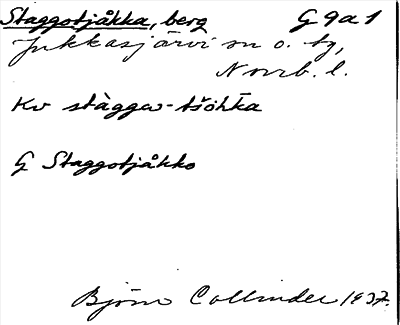 Staggotjåkka, berg G 9a1
Jukkasjärvi sn o. tg,
Norrb. l.
Kv stàggω-tšòh̄ka
G Staggotjåkko
Björn Collinder 1937.